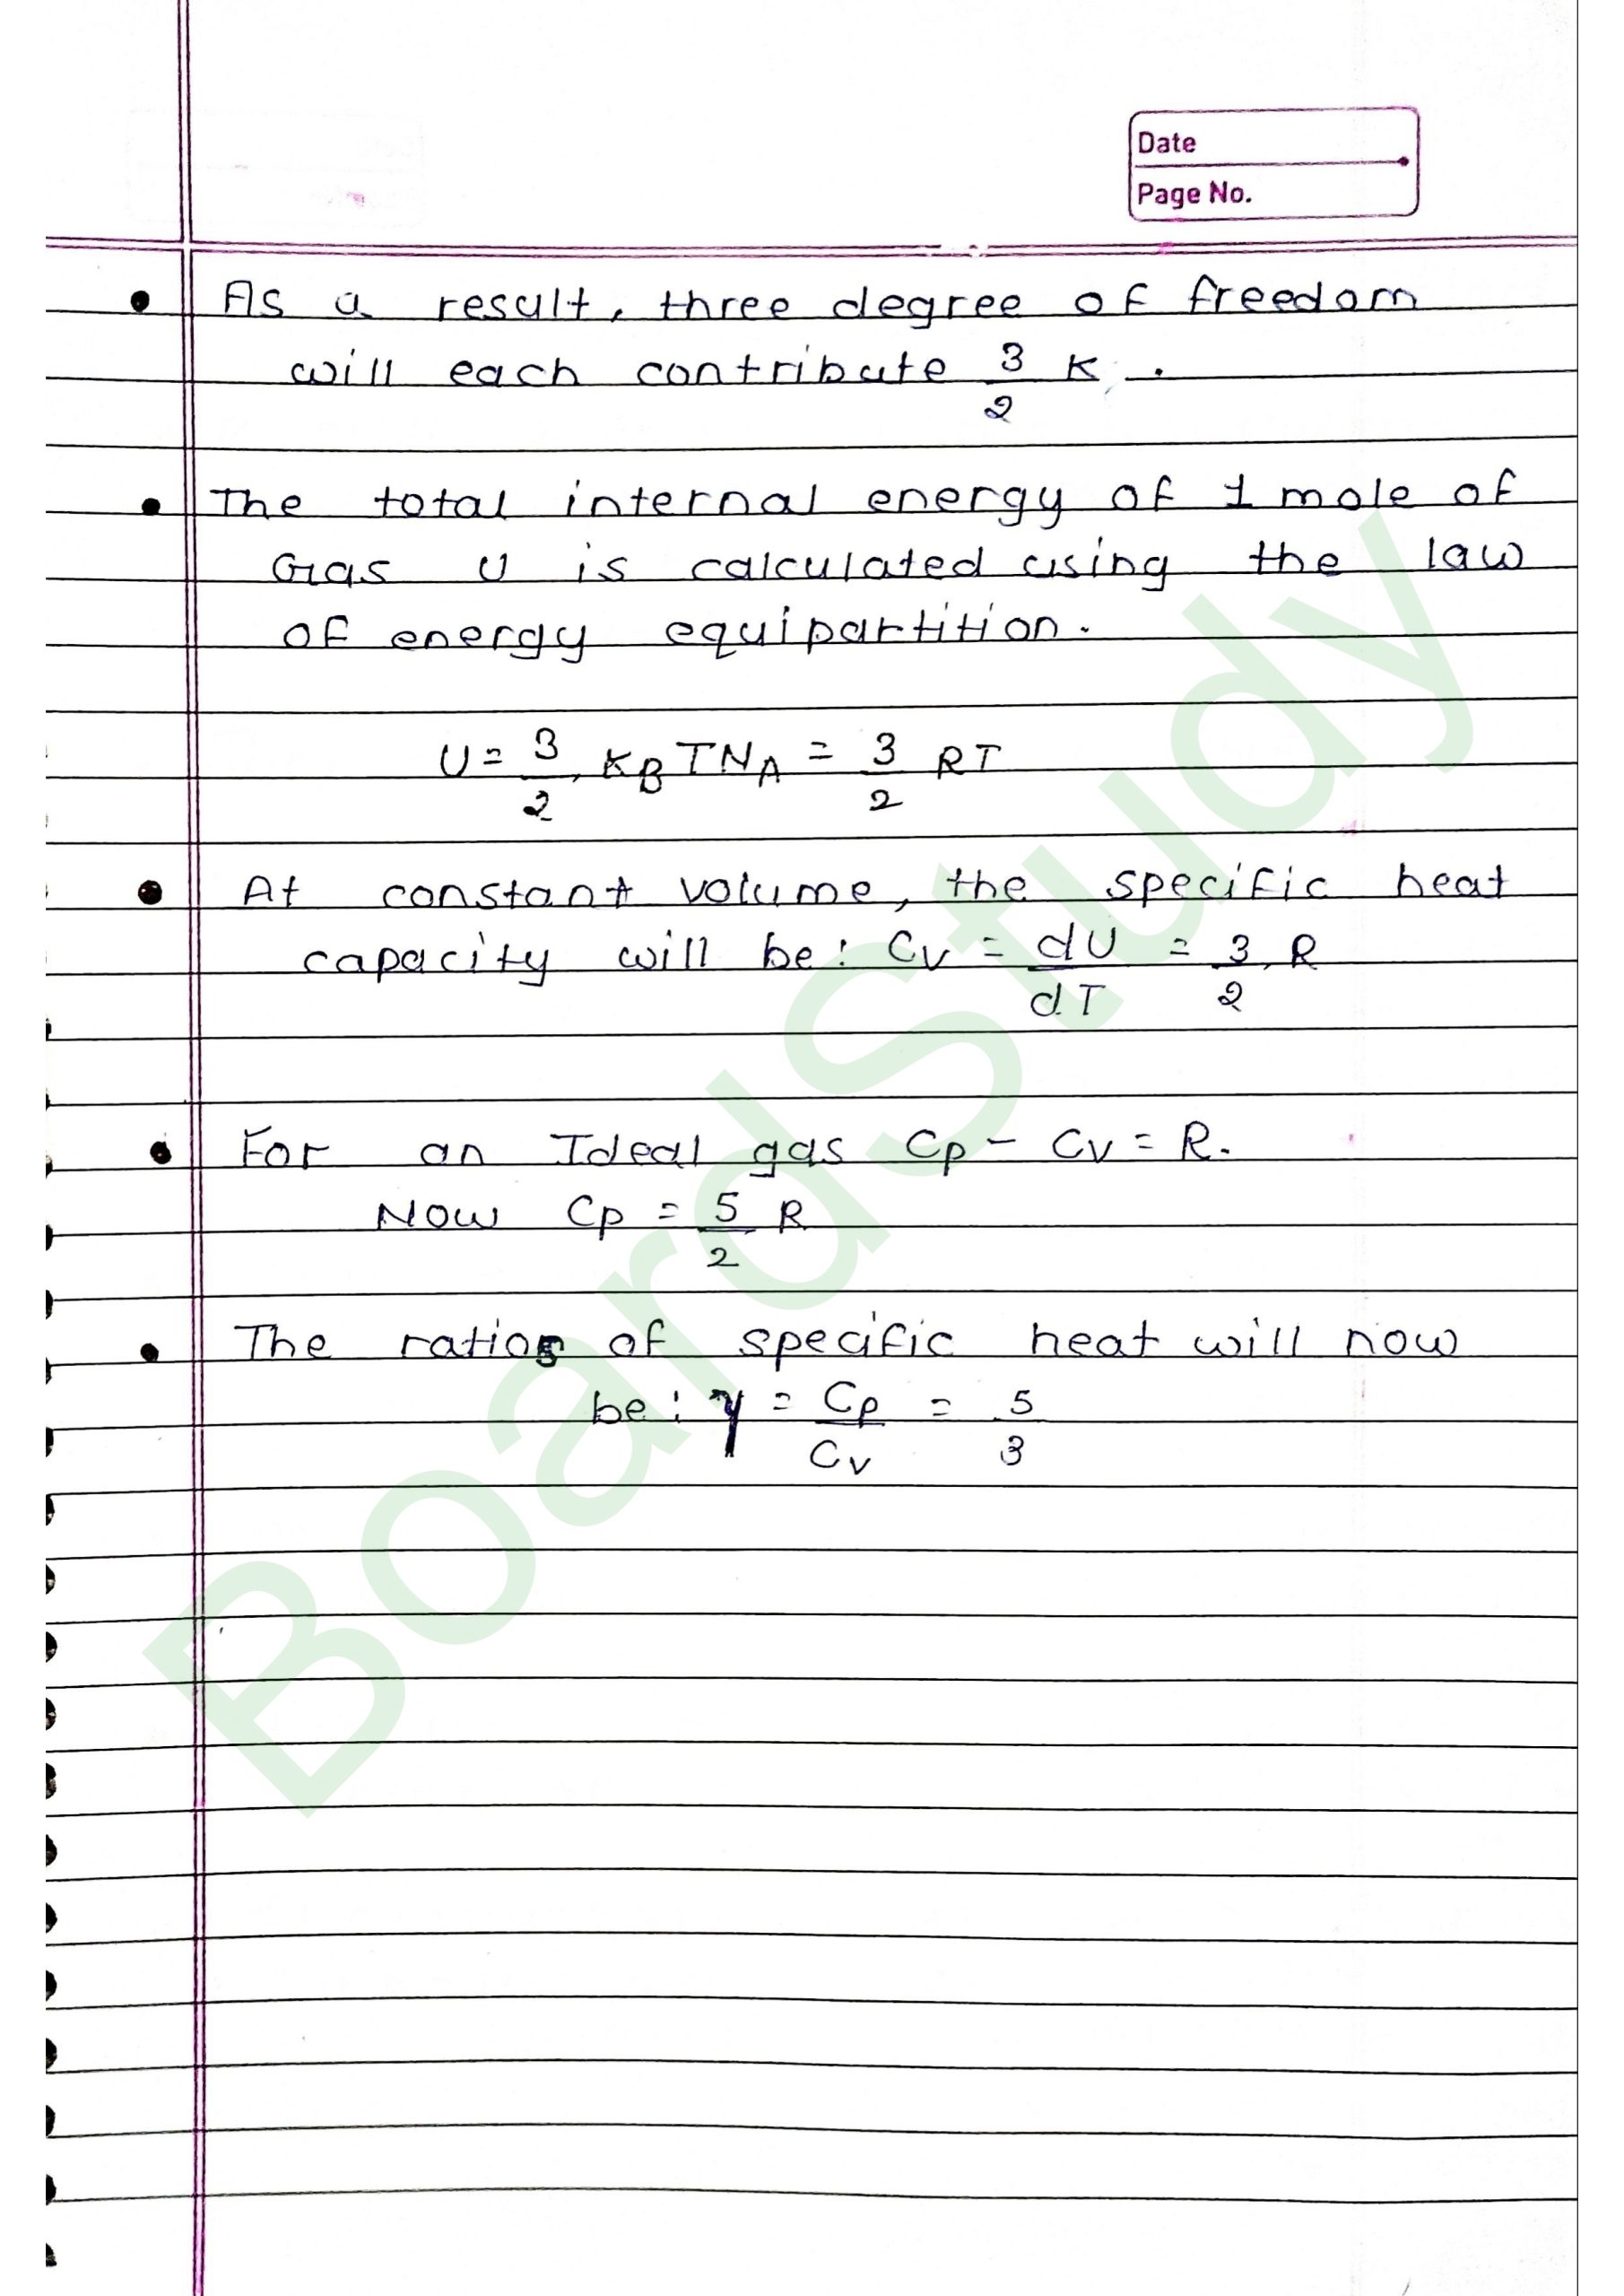 Date
Page No.
• As a result, three degree of freedom
will each contribute 3/2 K.
• The total internal energy of 1 mole of
Gas U is calculated using the law
of energy equipartition.
U = 3/2 KB TNA = 3/2 RT
• At constant volume, the specific heat
capacity will be: Cv = dU/dT = 3/2 R
• For an Ideal gas Cp - Cv = R.
Now Cp = 5/2 R
• The ratios of specific heat will now
be: γ = Cp/Cv = 5/3
BoardStudy